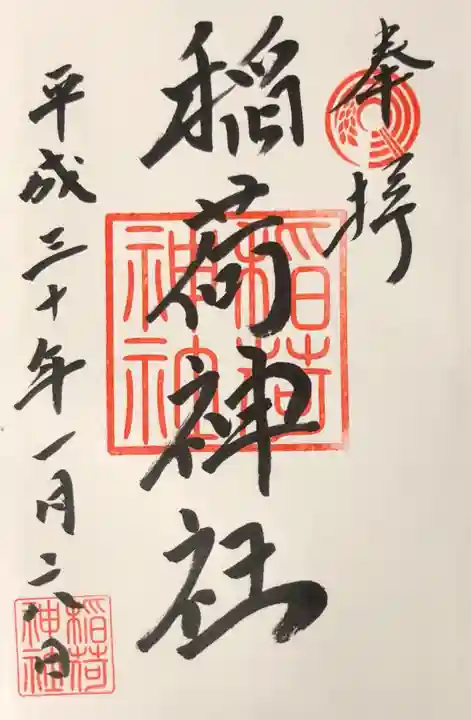 奉拝
稲荷神社
稲荷神社
平成三十年一月六日
稲荷神社